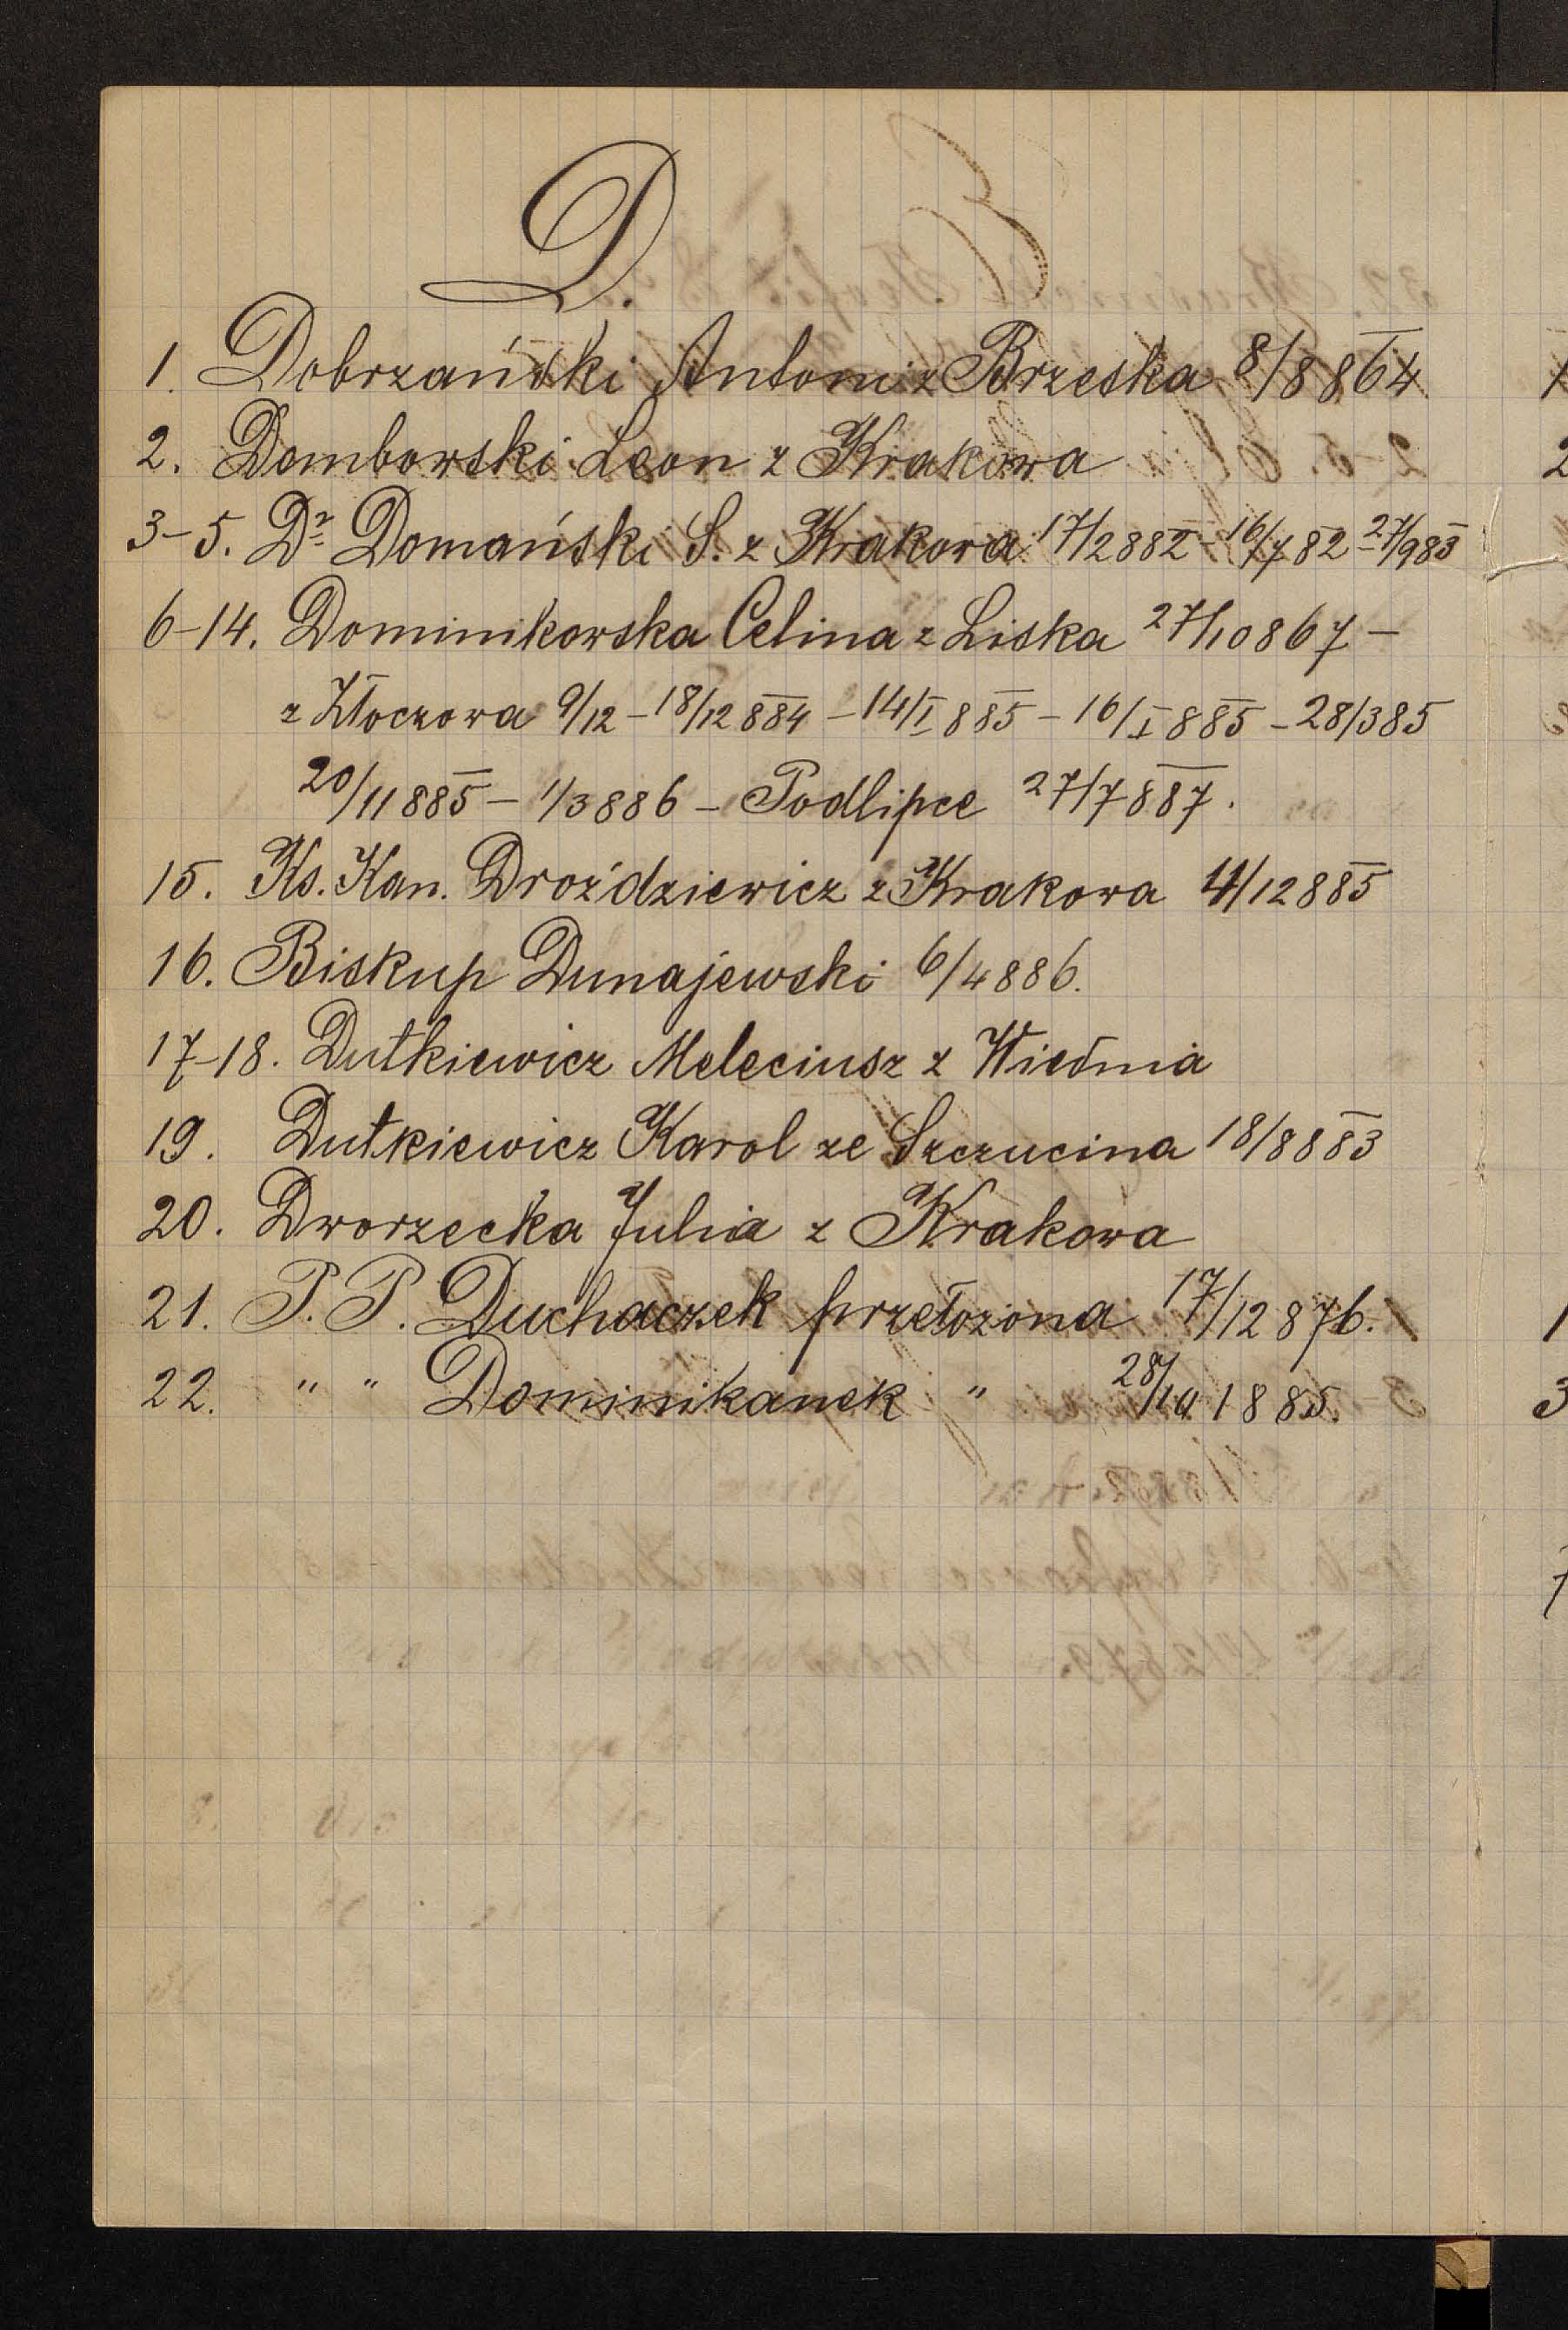 D.
1. Dobrzański Antoni z Brzeska 8/8 864
2. Dombowski Leon z Krakowa
3-5. Dr Domański S. z Krakowa 17/2 882 - 16/7 82 - 27/9 83
6-14. Dominikowska Celina z Liska 27/10 867 -
z Złoczowa 9/12 - 18/12 884 - 14/I 885 - 16/I 885 - 28/3 85
20/11 885 - 1/3 886 - Podlipce 27/7 887.
15. Ks. Kan. Droździewicz z Krakowa 4/12 885
16. Biskup Dunajewski 6/4 886.
17-18. Dutkiewicz Meleciusz z Wiednia
19. Dutkiewicz Karol ze Szczucina 18/8 883
20. Dworzecka Julia z Krakowa
21. P. P. Duchaczek przełożona 17/12 876.
22. " " Dominikanek " 28/10 1885.